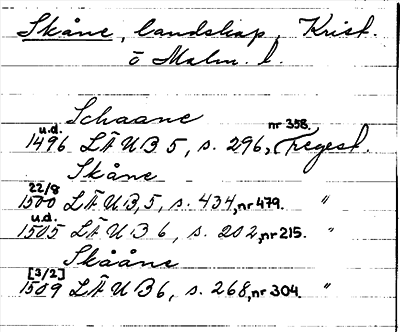 Skåne, landskap, Krist.
o Malm. l.
Schaane
u.d. nr 358.
1496 LÄUB 5, s. 296, (regest.
Skåne
22/8
1500 LÄUB, 5, s. 434, nr 479. "
u.d.
1505 LÄUB 6, s. 202, nr 215. "
Skååne
[3/2]
1509 LÄUB 6, s. 268, nr 304. "